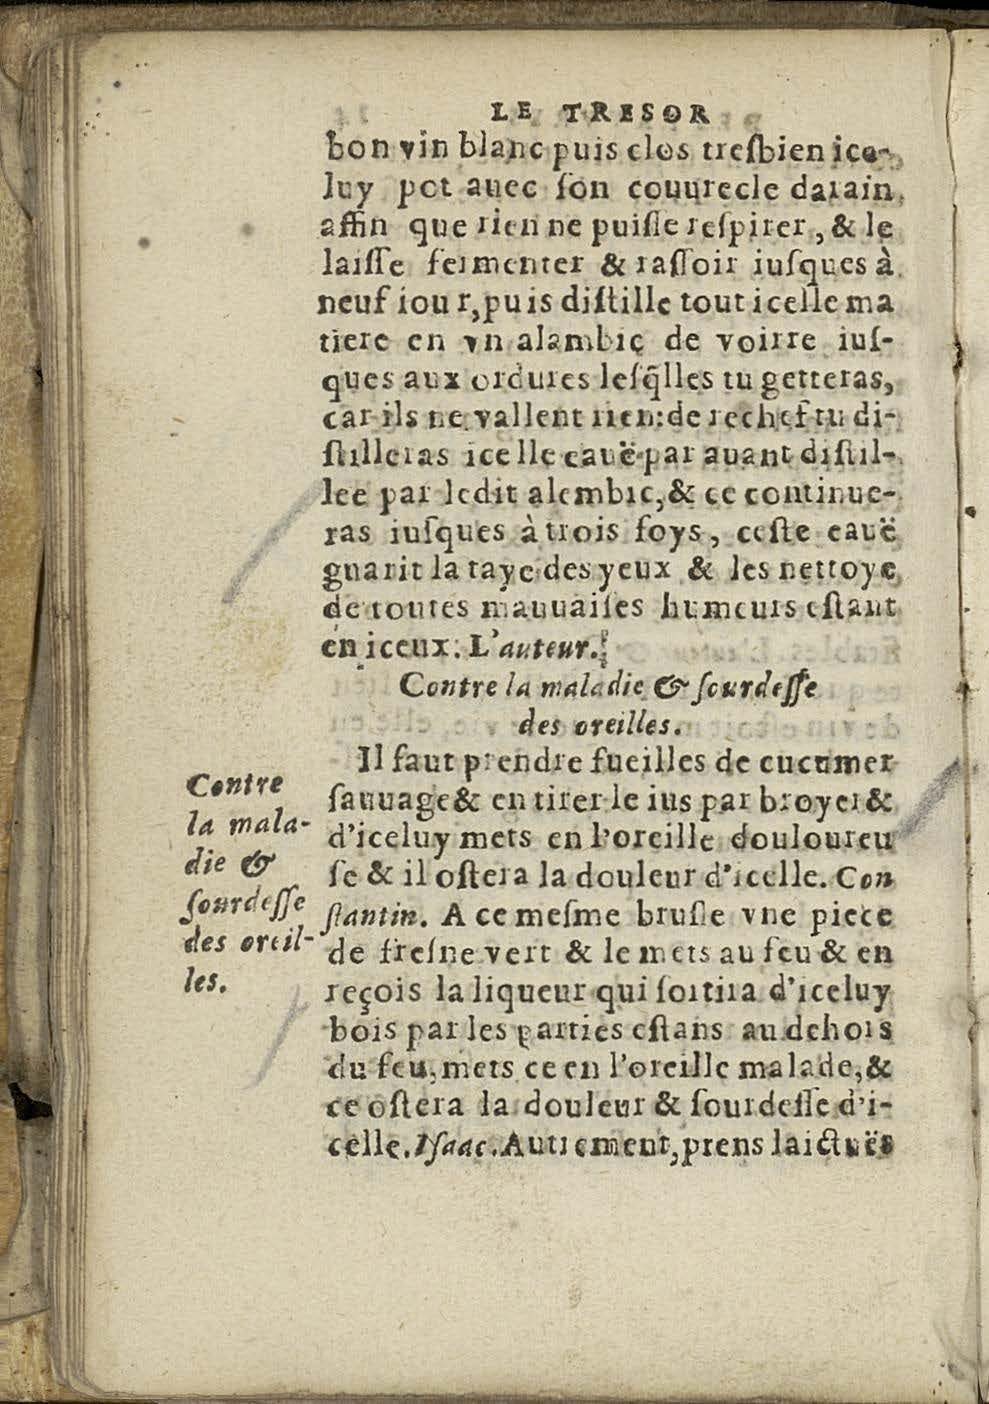 LE TRESOR
bon vin blanc puis clos tresbien ice-
luy pot auec son couurecle darain,
affin que rien ne puisse respirer, & le
laisse fermenter & rassoir iusques à
neuf iour, puis distille tout icelle ma
tiere en vn alambic de voirre iuſ-
ques aux ordures leſq̃lles tu getteras,
car ils ne vallent rien: de rechef tu di-
ſtilleras icelle eauë par auant diſtil-
lee par ledit alembic, & ce continue-
ras iuſques à trois foys, ceſte eauë
guarit la taye des yeux & les nettoye
de toutes mauuaiſes humeurs eſtant
en iceux. L'auteur.
Contre la maladie & ſourdeſſe
des oreilles.
Il faut prendre fueilles de cucumer
ſauuage & en tirer le ius par broyer &
d'iceluy mets en l'oreille douloureu
ſe & il oſtera la douleur d'icelle. Con
ſtantin. A ce meſme bruſle vne piece
de freſne vert & le mets au feu & en
reçois la liqueur qui ſortira d'iceluy
bois par les parties eſtans au dehors
du feu, mets ce en l'oreille malade, &
ce oſtera la douleur & ſourdeſſe d'i-
celle. Iſaac. Autrement, prens laictuës
Contre
la mala-
die &
ſourdeſſe
des oreil-
les.